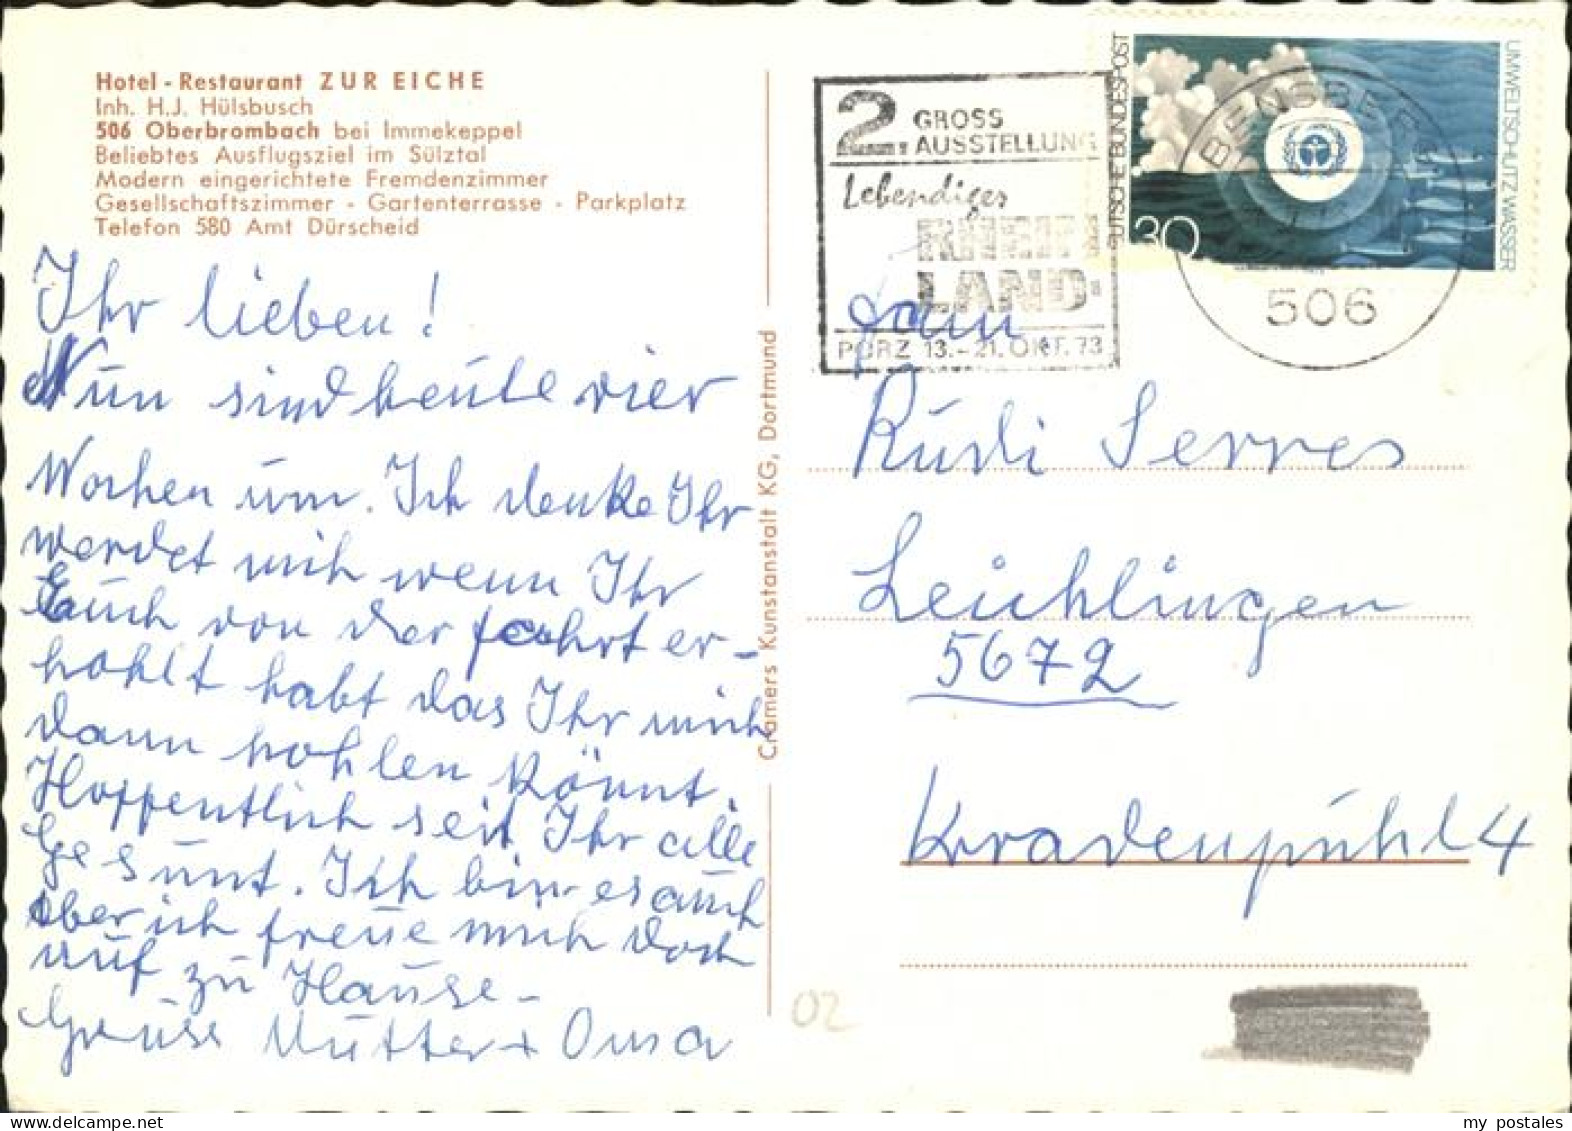 Hotel - Restaurant ZUR EICHE
Inh. H.J. Hülsbusch
506 Oberbrombach bei Immekeppel
Beliebtes Ausflugsziel im Sülztal
Modern eingerichtete Fremdenzimmer
Gesellschaftszimmer - Gartenterrasse - Parkplatz
Telefon 580 Amt Dürscheid
Ihr lieben!
Nun sind heute vier
Wochen um. Ich denke Ihr
werdet mich wenn Ihr
Euch von der fahrt er-
hohlt habt das Ihr mich
dann hohlen könnt.
Hoppentlich seit Ihr alle
Gesunt. Ich bin es auch
aber ich freue mich doch
auf zu Hause -
Grüse Mutter + Oma
Cramers Kunstanstalt KG, Dortmund
2. GROSS
AUSSTELLUNG
Lebendiges
RHEIN
LAND
PORZ 13.-21. OKT. 73
DEUTSCHE BUNDESPOST
30
UMWELTSCHUTZ WASSER
BENSBERG
506
Fam
Rudi Serres
Leichlingen
5672
Kradenpühl 4
02
my postales